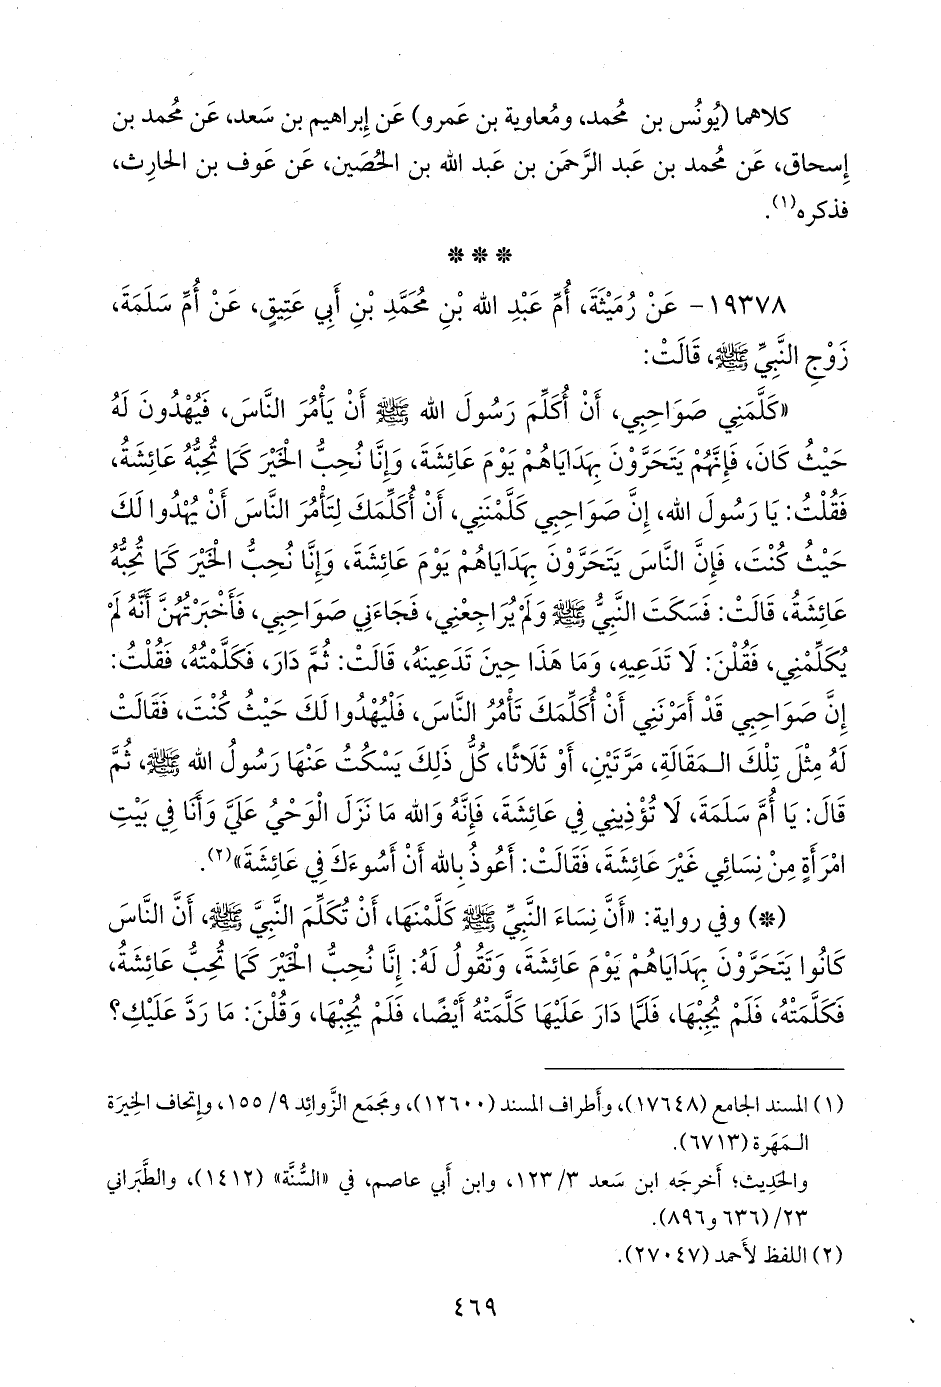 كلاهما (يُونُس بن مُحمد، ومُعاوية بن عَمرو) عَن إِبراهيم بن سَعد، عَن مُحمد بن
إِسحاق، عَن مُحمد بن عَبد الرَّحمَن بن عَبد الله بن الحُصَين، عَن عَوف بن الحارِث،
فذكره(١).
* * *
١٩٣٧٨- عَنْ رُمَيْثَةَ، أُمِّ عَبْدِ الله بْنِ مُحَمَّدِ بْنِ أَبِي عَتِيقٍ، عَنْ أُمِّ سَلَمَةَ،
زَوْجِ النَّبِيِّ ﷺ، قَالَتْ:
«كَلَّمَنِي صَوَاحِبِي، أَنْ أُكَلِّمَ رَسُولَ الله ﷺ أَنْ يَأْمُرَ النَّاسَ، فَيُهْدُونَ لَهُ
حَيْثُ كَانَ، فَإِنَّهُمْ يَتَحَرَّوْنَ بِهَدَايَاهُمْ يَوْمَ عَائِشَةَ، وَإِنَّا نُحِبُّ الْخَيْرَ كَمَا تُحِبُّهُ عَائِشَةُ،
فَقُلْتُ: يَا رَسُولَ الله، إِنَّ صَوَاحِبِي كَلَّمْنَنِي، أَنْ أُكَلِّمَكَ لِتَأْمُرَ النَّاسَ أَنْ يُهْدُوا لَكَ
حَيْثُ كُنْتَ، فَإِنَّ النَّاسَ يَتَحَرَّوْنَ بِهَدَايَاهُمْ يَوْمَ عَائِشَةَ، وَإِنَّا نُحِبُّ الْخَيْرَ كَمَا تُحِبُّهُ
عَائِشَةُ، قَالَتْ: فَسَكَتَ النَّبِيُّ ﷺ وَلَمْ يُرَاجِعْنِي، فَجَاءَنِي صَوَاحِبِي، فَأَخْبَرْتُهُنَّ أَنَّهُ لَمْ
يُكَلِّمْنِي، فَقُلْنَ: لَا تَدَعِيهِ، وَمَا هَذَا حِينَ تَدَعِينَهُ، قَالَتْ: ثُمَّ دَارَ، فَكَلَّمْتُهُ، فَقُلْتُ:
إِنَّ صَوَاحِبِي قَدْ أَمَرْنَنِي أَنْ أُكَلِّمَكَ تَأْمُرُ النَّاسَ، فَلْيُهْدُوا لَكَ حَيْثُ كُنْتَ، فَقَالَتْ
لَهُ مِثْلَ تِلْكَ الـمَقَالَةِ، مَرَّتَيْنِ، أَوْ ثَلَاثًا، كُلُّ ذَلِكَ يَسْكُتُ عَنْهَا رَسُولُ الله ﷺ، ثُمَّ
قَالَ: يَا أُمَّ سَلَمَةَ، لَا تُؤْذِينِي فِي عَائِشَةَ، فَإِنَّهُ وَالله مَا نَزَلَ الْوَحْيُ عَلَيَّ وَأَنَا فِي بَيْتِ
امْرَأَةٍ مِنْ نِسَائِي غَيْرَ عَائِشَةَ، فَقَالَتْ: أَعُوذُ بِالله أَنْ أَسُوءَكَ فِي عَائِشَةَ»(٢).
(*) وفي رواية: «أَنَّ نِسَاءَ النَّبِيِّ ﷺ كَلَّمْنَهَا، أَنْ تُكَلِّمَ النَّبِيَّ ﷺ، أَنَّ النَّاسَ
كَانُوا يَتَحَرَّوْنَ بِهَدَايَاهُمْ يَوْمَ عَائِشَةَ، وَتَقُولُ لَهُ: إِنَّا نُحِبُّ الْخَيْرَ كَمَا تُحِبُّ عَائِشَةُ،
فَكَلَّمَتْهُ، فَلَمْ يُجِبْهَا، فَلَمَّا دَارَ عَلَيْهَا كَلَّمَتْهُ أَيْضًا، فَلَمْ يُجِبْهَا، وَقُلْنَ: مَا رَدَّ عَلَيْكِ؟
(١) المسند الجامع (١٧٦٤٨)، وأَطراف المسند (١٢٦٠٠)، ومَجمَع الزَّوائِد ٩/ ١٥٥، وإِتحاف الخِيرَة
الـمَهَرة (٦٧١٣).
والحَدِيث؛ أَخرجَه ابن سَعد ٣/ ١٢٣، وابن أَبي عاصم، في «السُّنَّة» (١٤١٢)، والطَّبَراني
٢٣/(٦٣٦ و٨٩٦).
(٢) اللفظ لأَحمد (٢٧٠٤٧).
٤٦٩